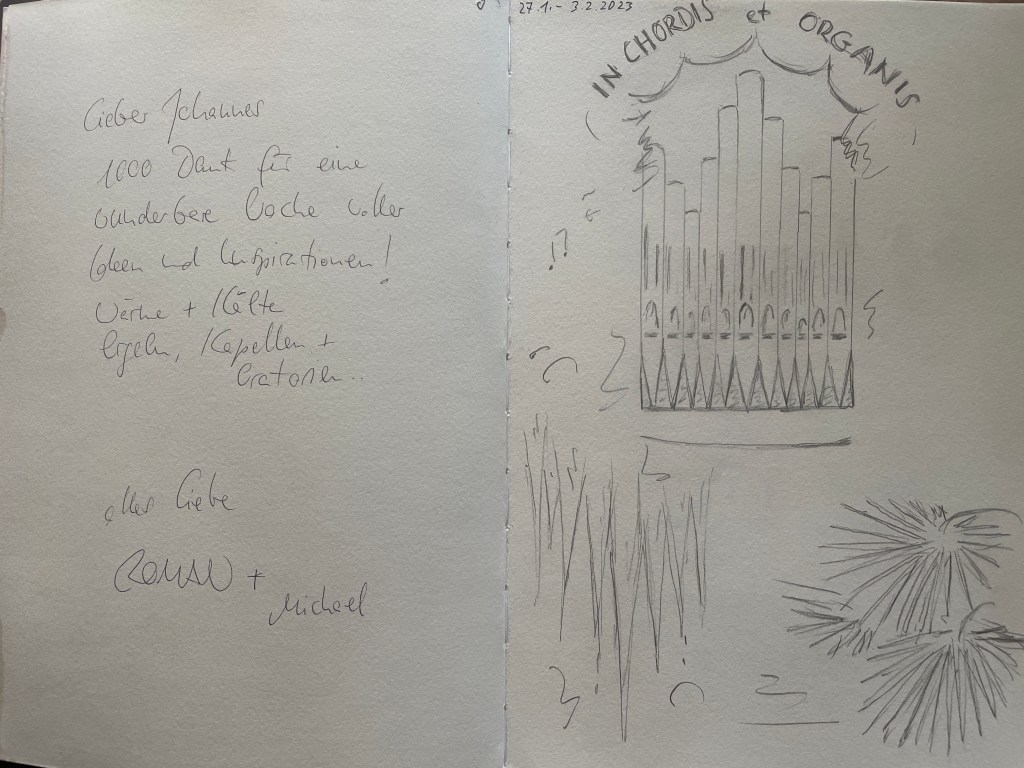 Lieber Johannes
1000 Dank für eine
wunderbare Woche voller
Ideen und Inspirationen!
Wärme + Kälte
Orgeln, Kapellen +
Oratorien..
alles Liebe
ROMAN +
Michael
27.1.-3.2.2023
IN CHORDIS et ORGANIS